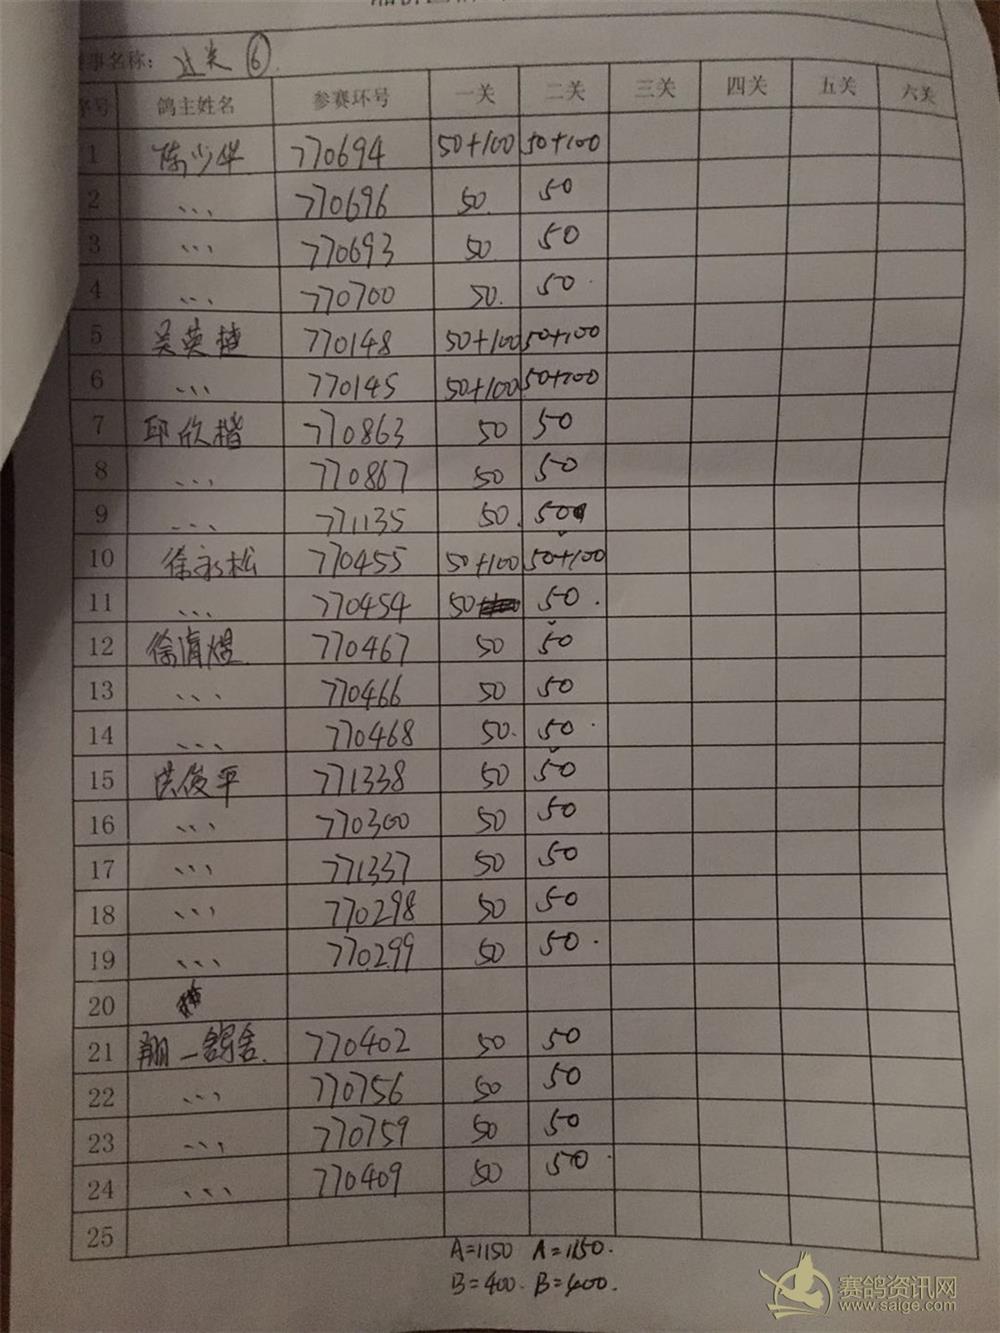 事名称: 过关 ⑥
序号 鸽主姓名 参赛环号 一关 二关 三关 四关 五关 六关
1 陈少华 770694 50+100 50+100
2 、、、 770696 50 50
3 、、、 770693 50 50
4 、、、 770700 50. 50
5 吴英雄 770148 50+100 50+100
6 、、、 770145 50+100 50+100
7 邱欣楷 770863 50 50
8 、、、 770867 50 50
9 、、、 771135 50. 50
10 徐永松 770455 50+100 50+100
11 、、、 770454 50 50.
12 徐煜 770467 50 50
13 、、、 770466 50 50
14 、、、 770468 50. 50.
15 洪俊平 771338 50 50
16 、、、 770300 50 50
17 、、、 771337 50 50
18 、、、 770298 50 50
19 、、、 770299 50 50.
20
21 翔一鸽舍. 770402 50 50
22 、、、 770756 50 50
23 、、、 770759 50 50
24 、、、 770409 50 50.
25
A=1150 A=1150.
B=400. B=400.
赛鸽资讯网
www.saige.com